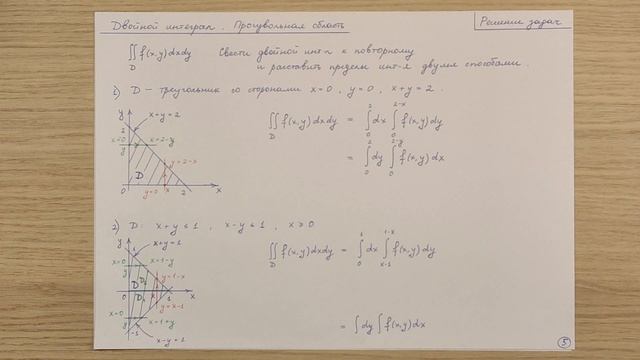 Двойной интеграл. Произвольная область
Решение задач
∬ f(x,y) dxdy Свести двойной инт-л к повторному
D и расставить пределы инт-я двумя способами.
1) D – треугольник со сторонами x=0, y=0, x+y=2.
y
x+y=2
2
x=0 x=2-y
y
y=2-x
D
0 y=0 x 2 x
∬ f(x,y) dxdy = ∫₀² dx ∫₀²⁻ˣ f(x,y) dy
D
= ∫₀² dy ∫₀²⁻ʸ f(x,y) dx
2) D: x+y ≤ 1, x-y ≤ 1, x ≥ 0
y
x+y=1
1
x=0 x=1-y
y
y=1-x
D
0 1 x
y=x-1
x=0 x=1+y
y
-1
x-y=1
∬ f(x,y) dxdy = ∫₀¹ dx ∫ₓ₋₁¹⁻ˣ f(x,y) dy
D
= ∫ dy ∫ f(x,y) dx
5